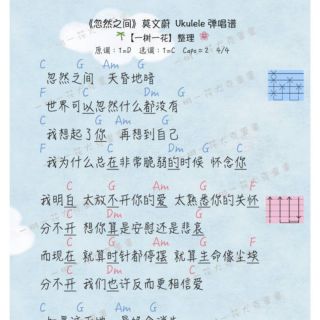 《忽然之间》莫文蔚 Ukulele 弹唱谱
【一树一花】整理
原调：1=D 选调：1=C Capo=2 4/4
C G Am G
忽然之间 天昏地暗
F C Dm G
世界可以忽然什么都没有
C G Am G
我想起了你 再想到自己
F C Dm G C
我为什么总在非常脆弱的时候 怀念你
C G Am F
我明白 太放不开你的爱 太熟悉你的关怀
C Dm G
分不开 想你算是安慰还是悲哀
C G Am F
而现在 就算时针都停摆 就算生命像尘埃
C Dm G
分不开 我们也许反而更相信爱
C G Am G